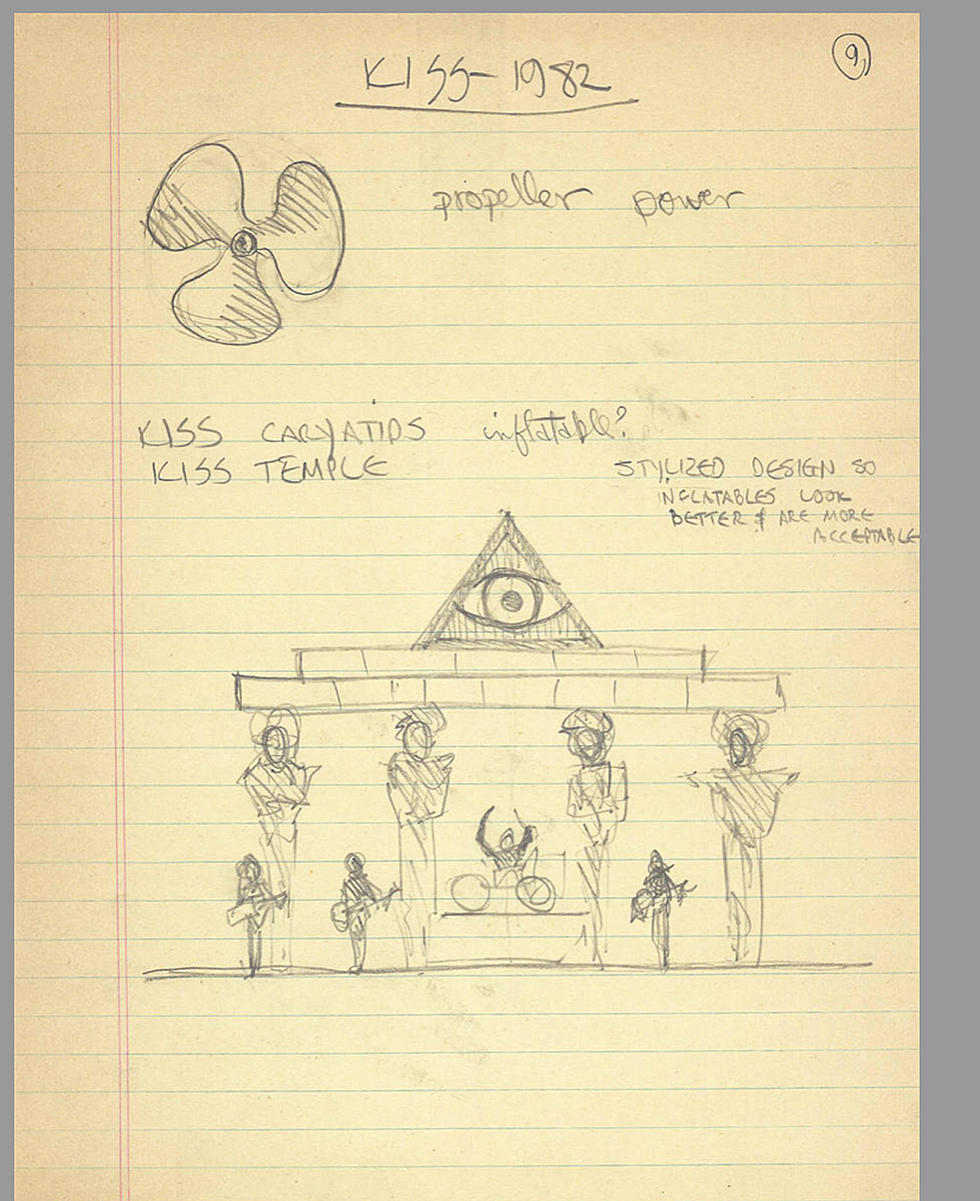 9
KISS-1982
propeller power
KISS CARYATIDS inflatable?
KISS TEMPLE
STYLIZED DESIGN SO
INFLATABLES LOOK
BETTER & ARE MORE
ACCEPTABLE